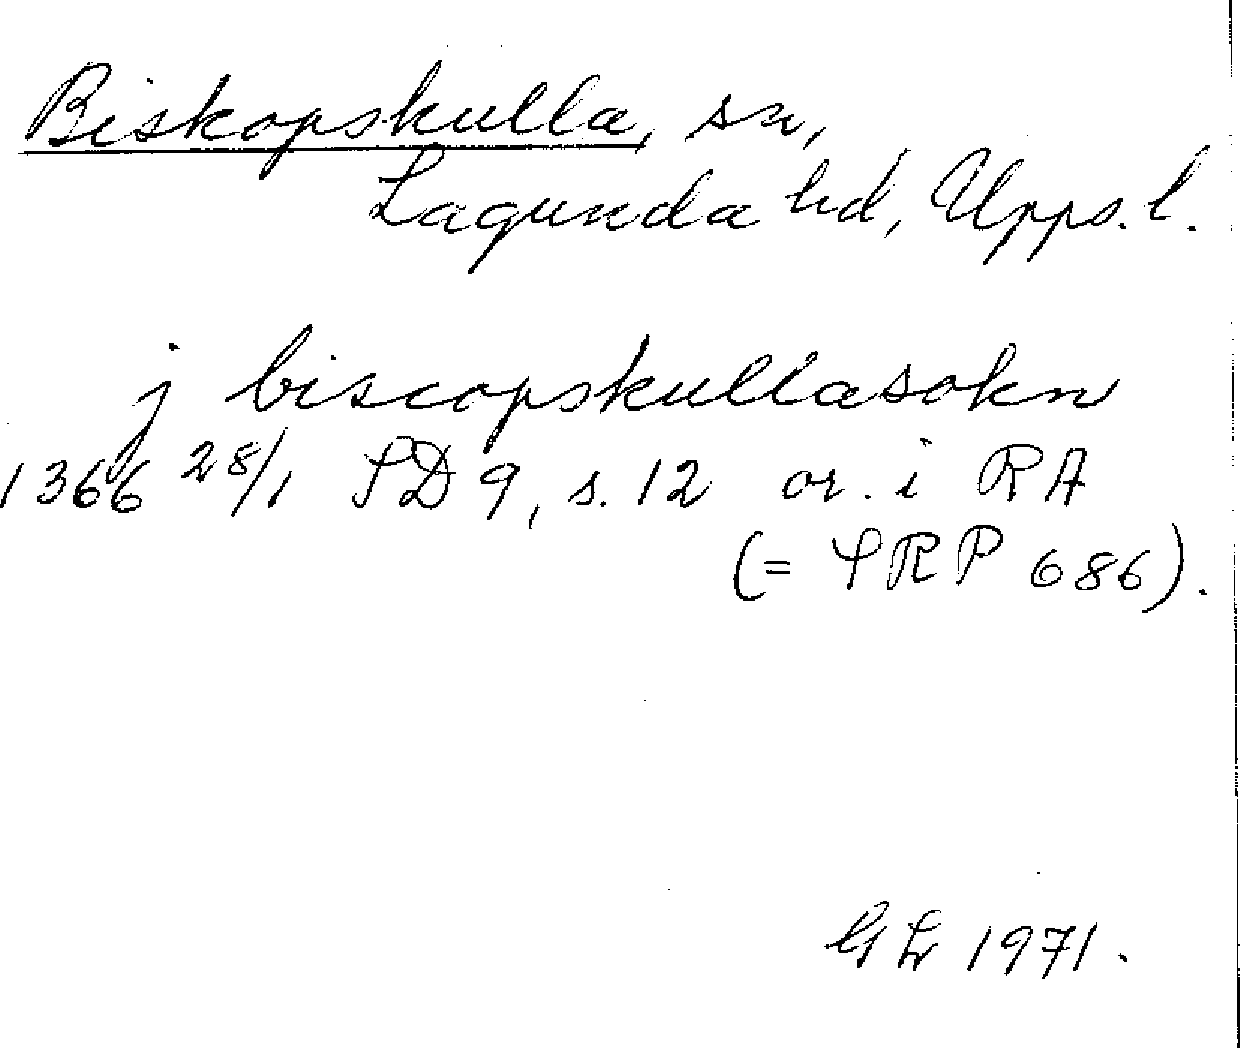 Biskopskulla, sn,
Lagunda hd, Upps. l.
j biscopskullasokn
1366 28/1 SD 9, s. 12 or. i RA
(= SRP 686).
GL 1971.